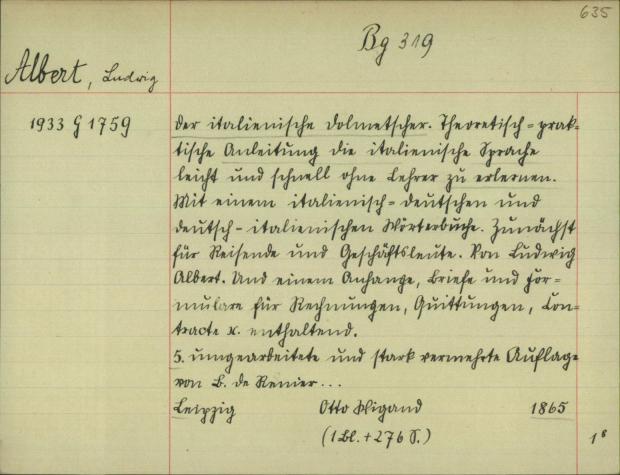 635
Bg 319
Albert, Ludwig
1933 G 1759
Der italienische Dolmetscher. Theoretisch-prak-
tische Anleitung die italienische Sprache
leicht und schnell ohne Lehrer zu erlernen.
Mit einem italienisch-deutschen und
deutsch-italienischen Wörterbuche. Zunächst
für Reisende und Geschäftsleute. Von Ludwig
Albert. Und einem Anhange, Briefe und For-
mulare für Rechnungen, Quittungen, Con-
tracte x. enthaltend.
5. umgearbeitete und stark vermehrte Auflage
von B. de Renier...
Leipzig Otto Wigand 1865
(1 Bl. + 276 S.)
1⁸